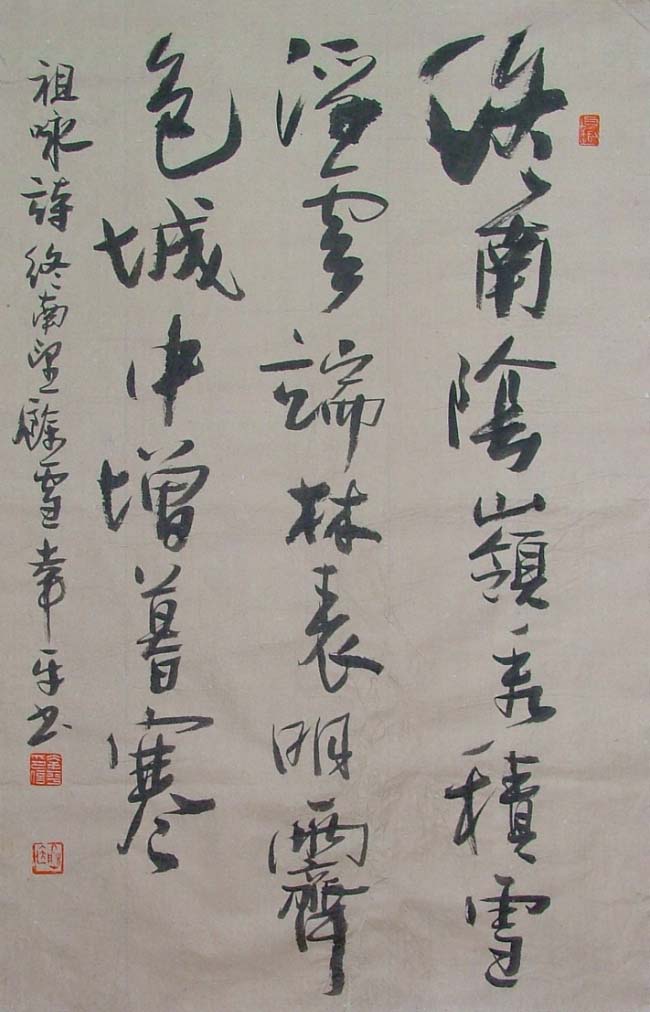 終南陰嶺秀積雪
浮雲端林表明霽
色城中增暮寒
祖咏詩終南望餘雪平书